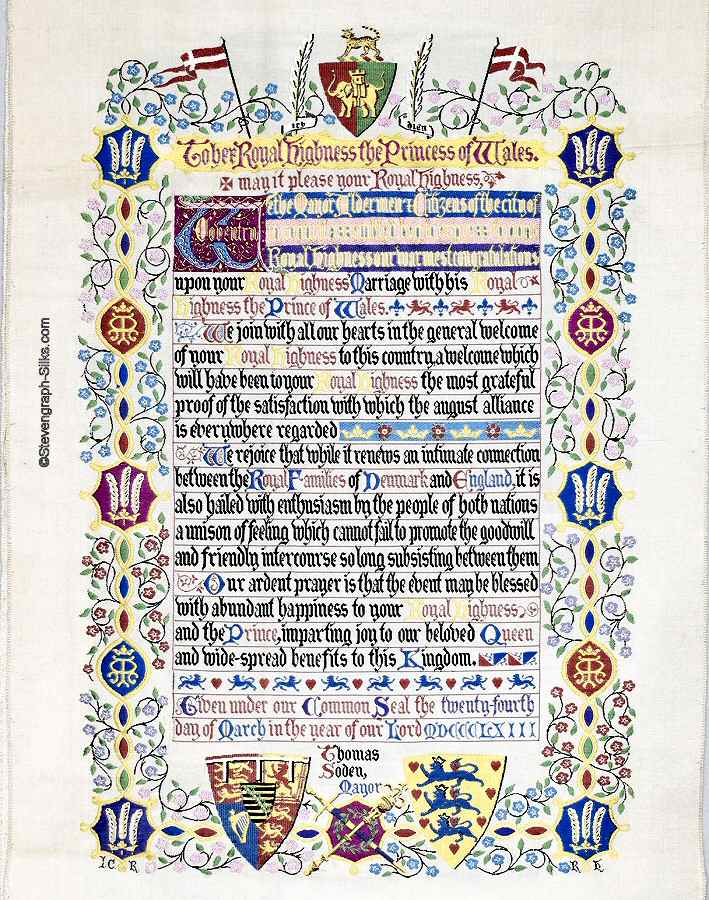 ich dien
To her Royal Highness the Princess of Wales.
may it please your Royal Highness,
We the Mayor, Aldermen & Citizens of the city of
Coventry
Royal Highness our warmest congratulations
upon your Royal Highness Marriage with his Royal
Highness the Prince of Wales.
We join with all our hearts in the general welcome
of your Royal Highness to this country, a welcome which
will have been to your Royal Highness the most grateful
proof of the satisfaction with which the august alliance
is everywhere regarded
We rejoice that while it renews an intimate connection
between the Royal Families of Denmark and England, it is
also hailed with enthusiasm by the people of both nations
a unison of feeling which cannot fail to promote the goodwill
and friendly intercourse so long subsisting between them
Our ardent prayer is that the event may be blessed
with abundant happiness to your Royal Highness
and the Prince, imparting joy to our beloved Queen
and wide-spread benefits to this Kingdom.
Given under our Common Seal the twenty-fourth
day of March in the year of our Lord MDCCCLXIII
Thomas
Soden,
Mayor
©Stevengraph-Silks.com